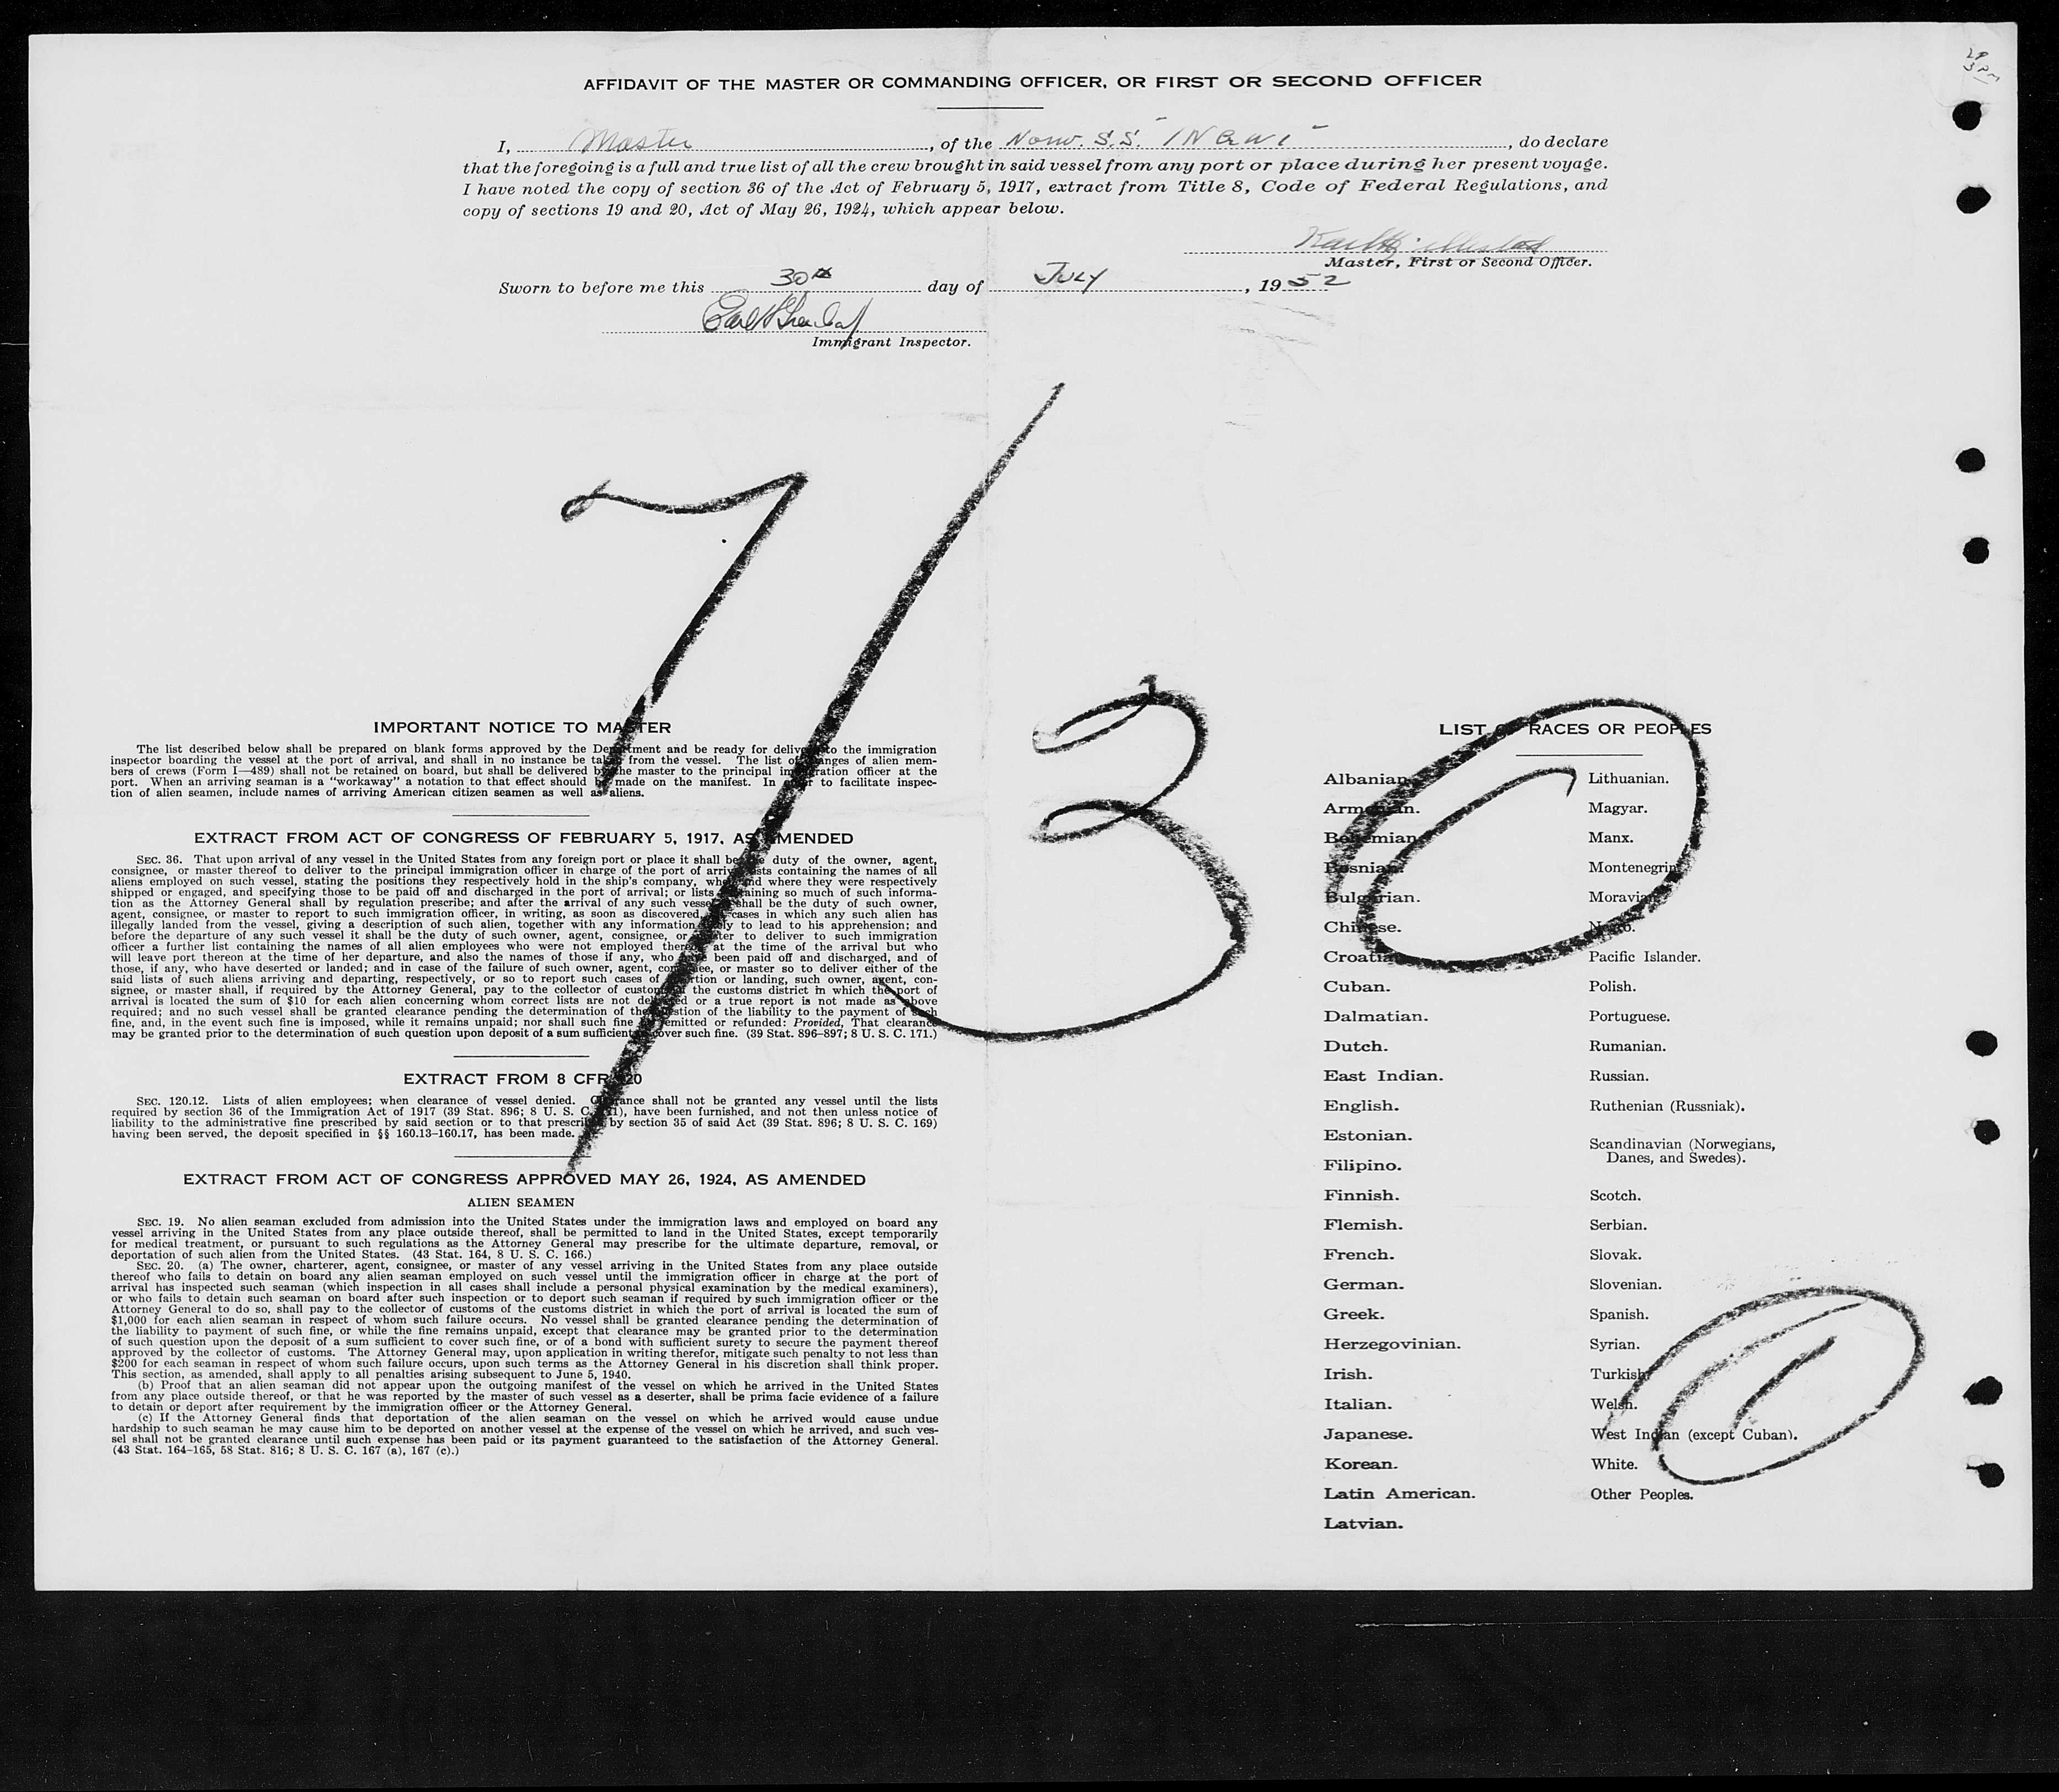 AFFIDAVIT OF THE MASTER OR COMMANDING OFFICER, OR FIRST OR SECOND OFFICER
I, Master, of the Norw. S.S. , do declare
that the foregoing is a full and true list of all the crew brought in said vessel from any port or place during her present voyage.
I have noted the copy of section 36 of the Act of February 5, 1917, extract from Title 8, Code of Federal Regulations, and
copy of sections 19 and 20, Act of May 26, 1924, which appear below.
Master, First or Second Officer.
Sworn to before me this 30th day of JULY, 1952
Immigrant Inspector.
7/30
IMPORTANT NOTICE TO MASTER
The list described below shall be prepared on blank forms approved by the Department and be ready for delivery to the immigration
inspector boarding the vessel at the port of arrival, and shall in no instance be taken from the vessel. The list of changes of alien mem-
bers of crews (Form I—489) shall not be retained on board, but shall be delivered by the master to the principal immigration officer at the
port. When an arriving seaman is a "workaway" a notation to that effect should be made on the manifest. In order to facilitate inspec-
tion of alien seamen, include names of arriving American citizen seamen as well as aliens.
EXTRACT FROM ACT OF CONGRESS OF FEBRUARY 5, 1917, AS AMENDED
SEC. 36. That upon arrival of any vessel in the United States from any foreign port or place it shall be the duty of the owner, agent,
consignee, or master thereof to deliver to the principal immigration officer in charge of the port of arrival lists containing the names of all
aliens employed on such vessel, stating the positions they respectively hold in the ship's company, when and where they were respectively
shipped or engaged, and specifying those to be paid off and discharged in the port of arrival; or lists containing so much of such informa-
tion as the Attorney General shall by regulation prescribe; and after the arrival of any such vessel it shall be the duty of such owner,
agent, consignee, or master to report to such immigration officer, in writing, as soon as discovered, all cases in which any such alien has
illegally landed from the vessel, giving a description of such alien, together with any information likely to lead to his apprehension; and
before the departure of any such vessel it shall be the duty of such owner, agent, consignee, or master to deliver to such immigration
officer a further list containing the names of all alien employees who were not employed thereon at the time of the arrival but who
will leave port thereon at the time of her departure, and also the names of those if any, who have been paid off and discharged, and of
those, if any, who have deserted or landed; and in case of the failure of such owner, agent, consignee, or master so to deliver either of the
said lists of such aliens arriving and departing, respectively, or so to report such cases of desertion or landing, such owner, agent, con-
signee, or master shall, if required by the Attorney General, pay to the collector of customs of the customs district in which the port of
arrival is located the sum of $10 for each alien concerning whom correct lists are not delivered or a true report is not made as above
required; and no such vessel shall be granted clearance pending the determination of the question of the liability to the payment of such
fine, and, in the event such fine is imposed, while it remains unpaid; nor shall such fine be remitted or refunded: Provided, That clearance
may be granted prior to the determination of such question upon deposit of a sum sufficient to cover such fine. (39 Stat. 896-897; 8 U. S. C. 171.)
EXTRACT FROM 8 CFR 120
SEC. 120.12. Lists of alien employees; when clearance of vessel denied. Clearance shall not be granted any vessel until the lists
required by section 36 of the Immigration Act of 1917 (39 Stat. 896; 8 U. S. C. 171), have been furnished, and not then unless notice of
liability to the administrative fine prescribed by said section or to that prescribed by section 35 of said Act (39 Stat. 896; 8 U. S. C. 169)
having been served, the deposit specified in §§ 160.13-160.17, has been made.
EXTRACT FROM ACT OF CONGRESS APPROVED MAY 26, 1924, AS AMENDED
ALIEN SEAMEN
SEC. 19. No alien seaman excluded from admission into the United States under the immigration laws and employed on board any
vessel arriving in the United States from any place outside thereof, shall be permitted to land in the United States, except temporarily
for medical treatment, or pursuant to such regulations as the Attorney General may prescribe for the ultimate departure, removal, or
deportation of such alien from the United States. (43 Stat. 164, 8 U. S. C. 166.)
SEC. 20. (a) The owner, charterer, agent, consignee, or master of any vessel arriving in the United States from any place outside
thereof who fails to detain on board any alien seaman employed on such vessel until the immigration officer in charge at the port of
arrival has inspected such seaman (which inspection in all cases shall include a personal physical examination by the medical examiners),
or who fails to detain such seaman on board after such inspection or to deport such seaman if required by such immigration officer or the
Attorney General to do so, shall pay to the collector of customs of the customs district in which the port of arrival is located the sum of
$1,000 for each alien seaman in respect of whom such failure occurs. No vessel shall be granted clearance pending the determination of
the liability to payment of such fine, or while the fine remains unpaid, except that clearance may be granted prior to the determination
of such question upon the deposit of a sum sufficient to cover such fine, or of a bond with sufficient surety to secure the payment thereof
approved by the collector of customs. The Attorney General may, upon application in writing therefor, mitigate such penalty to not less than
$200 for each seaman in respect of whom such failure occurs, upon such terms as the Attorney General in his discretion shall think proper.
This section, as amended, shall apply to all penalties arising subsequent to June 5, 1940.
(b) Proof that an alien seaman did not appear upon the outgoing manifest of the vessel on which he arrived in the United States
from any place outside thereof, or that he was reported by the master of such vessel as a deserter, shall be prima facie evidence of a failure
to detain or deport after requirement by the immigration officer or the Attorney General.
(c) If the Attorney General finds that deportation of the alien seaman on the vessel on which he arrived would cause undue
hardship to such seaman he may cause him to be deported on another vessel at the expense of the vessel on which he arrived, and such ves-
sel shall not be granted clearance until such expense has been paid or its payment guaranteed to the satisfaction of the Attorney General.
(43 Stat. 164-165, 58 Stat. 816; 8 U. S. C. 167 (a), 167 (c).)
LIST OF RACES OR PEOPLES
Albanian.
Armenian.
Bohemian.
Bosnian.
Bulgarian.
Chinese.
Croatian.
Cuban.
Dalmatian.
Dutch.
East Indian.
English.
Estonian.
Filipino.
Finnish.
Flemish.
French.
German.
Greek.
Herzegovinian.
Irish.
Italian.
Japanese.
Korean.
Latin American.
Latvian.
Lithuanian.
Magyar.
Manx.
Montenegrin.
Moravian.
Negro.
Pacific Islander.
Polish.
Portuguese.
Rumanian.
Russian.
Ruthenian (Russniak).
Scandinavian (Norwegians,
Danes, and Swedes).
Scotch.
Serbian.
Slovak.
Slovenian.
Spanish.
Syrian.
Turkish.
Welsh.
West Indian (except Cuban).
White.
Other Peoples.
1